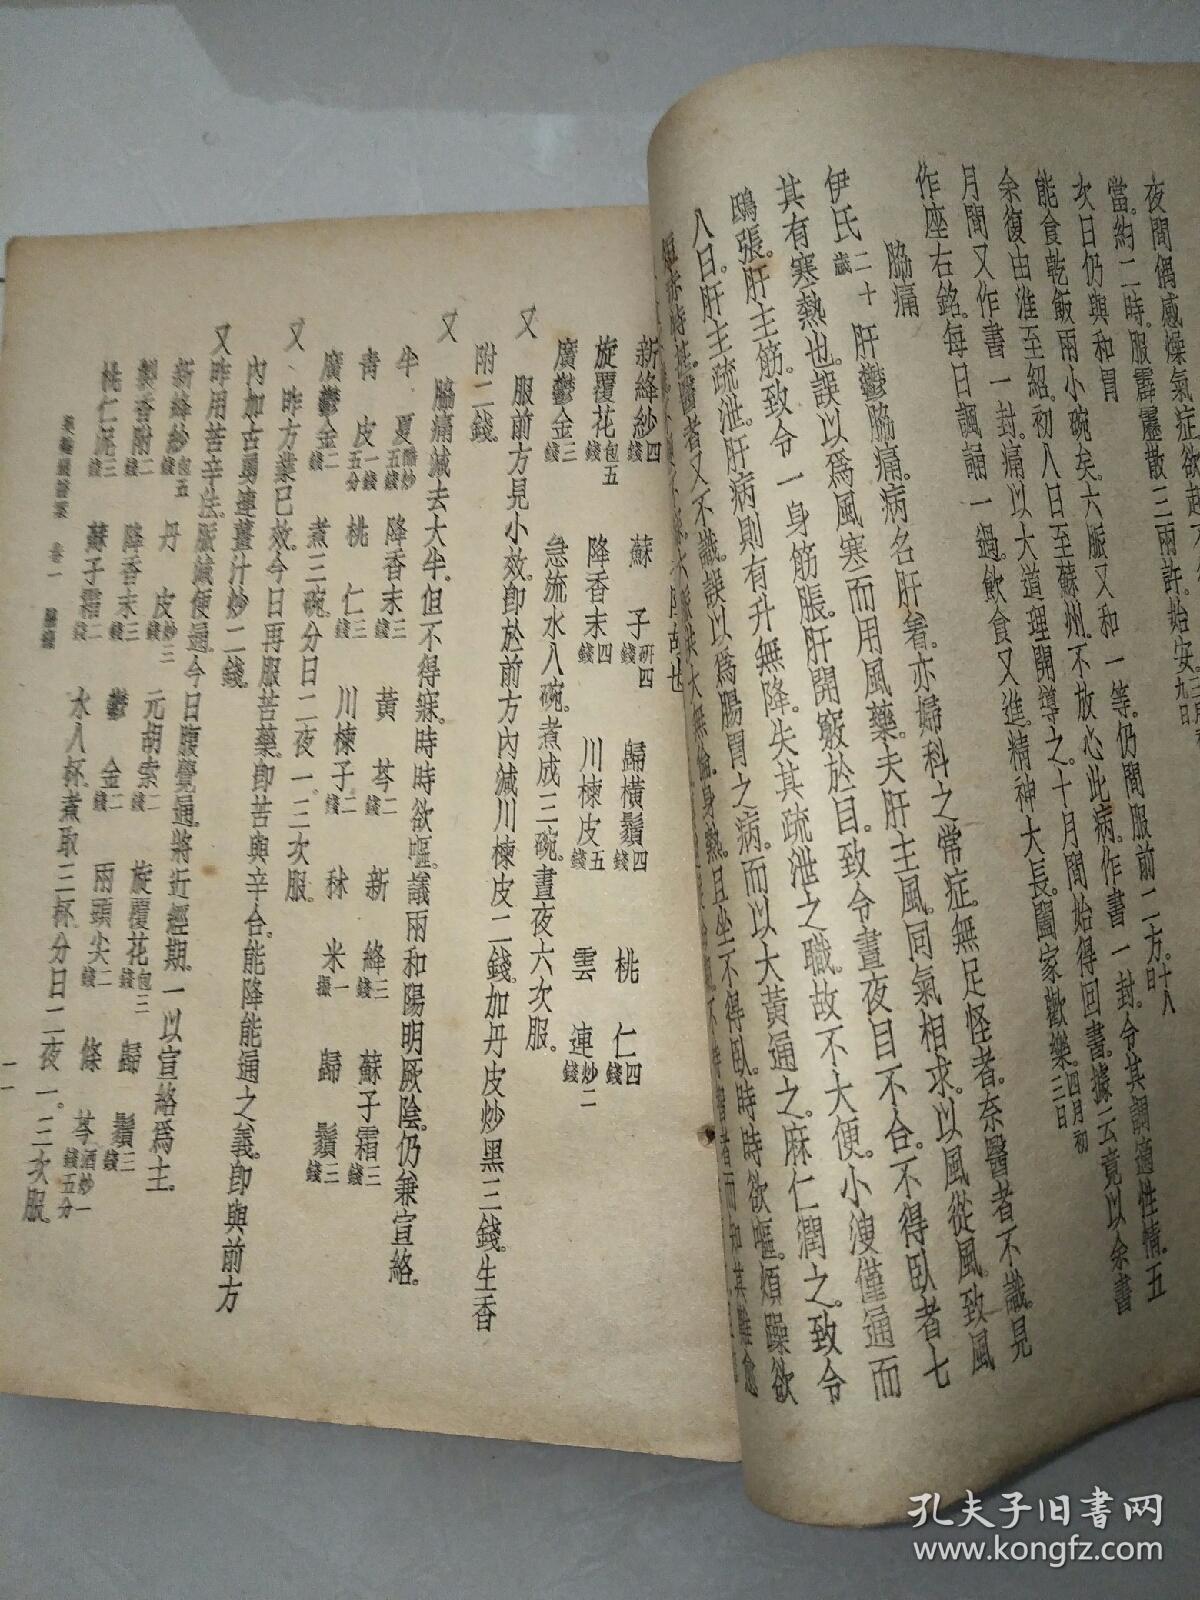 夜間偶感燥氣症欲起
當。約二時。服霹靂散三兩許。始安。
次日仍與和胃
能食乾飯兩小碗矣。六脈又和一等。仍間服前二方。十八日
余復由淮至紹。初八日至蘇州。不放心此病。作書一封。令其調適性情。五
月間又作書一封。痛以大道理開導之。十月間始得回書。據云竟以余書
作座右銘。每日諷誦一過。飲食又進。精神大長。闔家歡樂。四月初三日
脇痛
伊氏 二十歲 肝鬱脇痛。病名肝着。亦婦科之常症。無足怪者。奈醫者不識。見
其有寒熱也。誤以爲風寒而用風藥。夫肝主風。同氣相求。以風從風。致風
鴟張。肝主筋。致令一身筋脹。肝開竅於目。致令晝夜目不合。不得臥者七
八日。肝主疏泄。肝病則有升無降。失其疏泄之職。故不大便。小溲僅通而
短赤特甚。醫者又不識。誤以爲腸胃之病。而以大黃通之。麻仁潤之。致令
大無倫。身熱。且坐不得臥。時時欲嘔。煩躁欲
智者而知其難愈
新絳紗四錢 蘇子研四錢 歸橫鬚四錢 桃仁四錢
旋覆花包五錢 降香末四錢 川楝皮五錢 雲連炒二錢
廣鬱金三錢 急流水八碗。煮成三碗。晝夜六次服。
又 服前方見小效。即於前方內減川楝皮二錢。加丹皮炒黑三錢。生香
附二錢。
又 脇痛減去大半。但不得寐。時時欲嘔。議兩和陽明厥陰。仍兼宣絡。
半夏醋炒五錢 降香末三錢 黃芩二錢 新絳三錢 蘇子霜三錢
青皮一錢五分 桃仁三錢 川楝子二錢 秫米一撮 歸鬚三錢
廣鬱金二錢 煮三碗。分日二夜一。三次服。
又 昨方業已效。今日再服苦藥。即苦與辛合。能降能通之義。即與前方
內加古勇連薑汁炒二錢。
又 昨用苦辛法。脈減便通。今日腹覺通。將近經期。一以宣絡爲主。
新絳紗包五錢 丹皮炒三錢 元胡索二錢 旋覆花包三錢 歸鬚三錢
製香附二錢 降香末三錢 鬱金二錢 兩頭尖二錢 條芩酒炒一錢五分
桃仁泥三錢 蘇子霜二錢 水八杯。煮取三杯。分日二夜一。三次服。
卷一 脇痛
孔夫子旧书网
www.kongfz.com